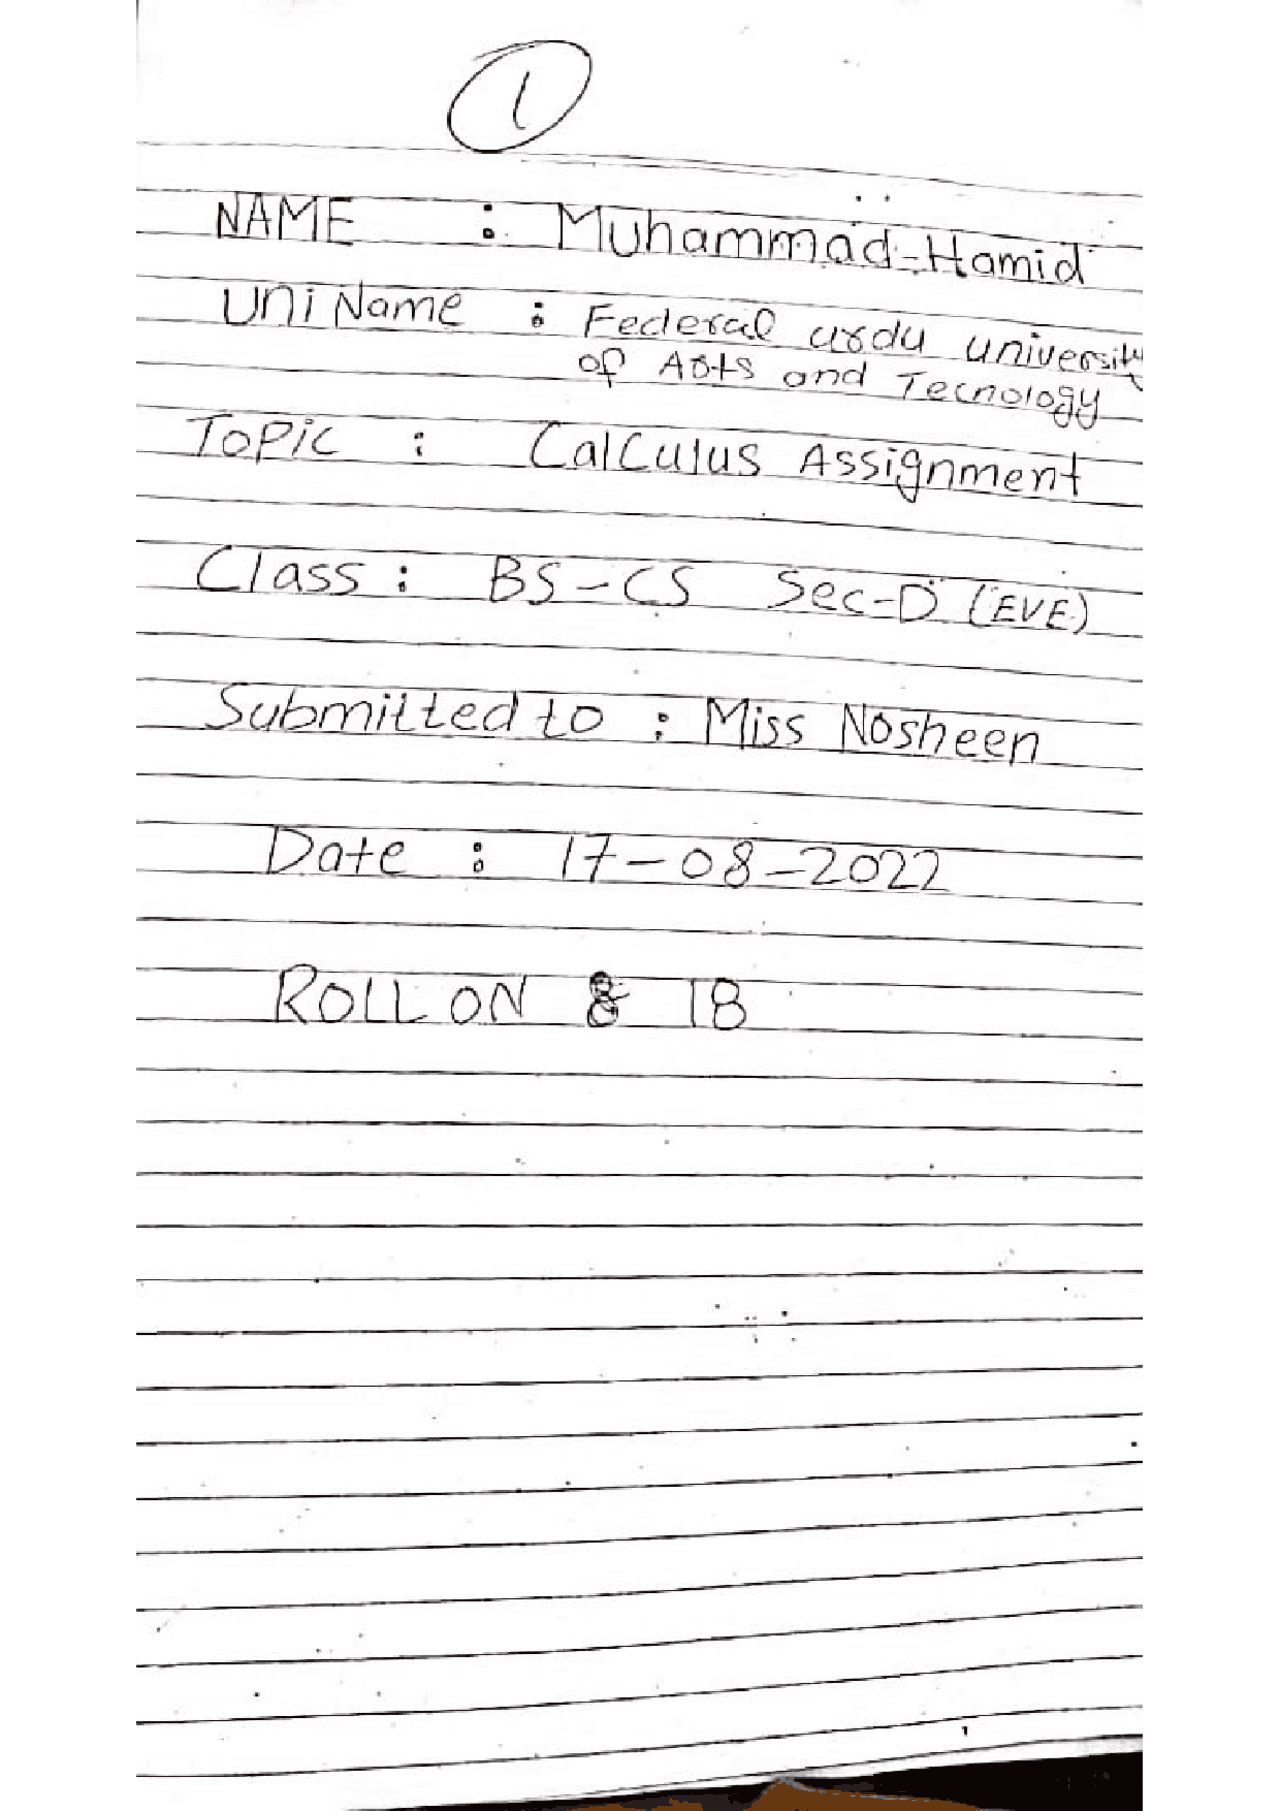 1
NAME : Muhammad-Hamid
Uni Name : Federal urdu university
of Arts and Tecnology
Topic : Calculus Assignment
Class : BS-CS Sec-D (EVE)
Submitted to : Miss Nosheen
Date : 17-08-2022
ROLL ON : 18